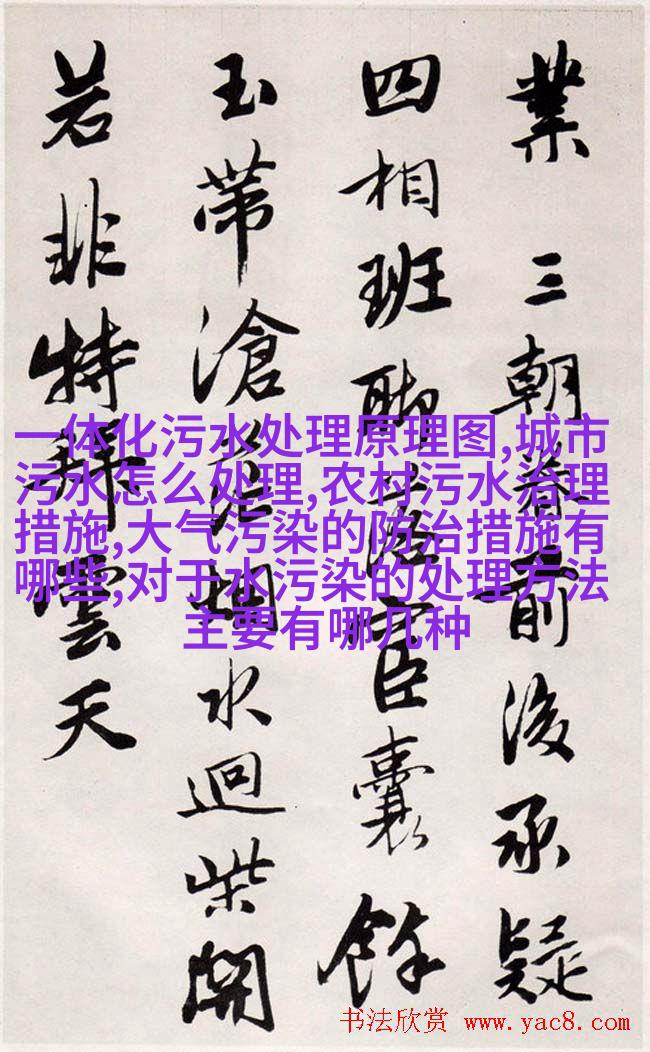 業 三朝前後承疑
四相班聯臣囊餘
玉帶滄烟水迴柴關
若非特雲天
一体化污水处理原理图,城市
污水怎么处理,农村污水治理
措施,大气污染的防治措施有
哪些,对于水污染的处理方法
主要有哪几种
书法欣赏 www.yac8.com